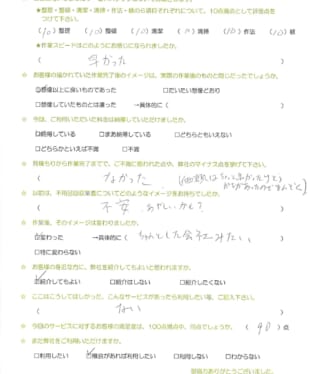 ★整理・整頓・清潔・清掃・作法・躾の6項目それぞれについて、10点満点として評価点を
つけて下さい。
(10)整理 (10)整頓 (10)清潔 (10)清掃 (10)作法 (10)躾
★作業スピードはどのようにお感じになられましたか。
( 早かった )
☆ お客様の描かれていた作業完了後のイメージは、実際の作業後のものと同じだったでしょうか。
☑想像以上に良いものであった □だいたい想像どおり
□想像していたものとは違った →具体的に( )
☆ 今回、ご利用いただいた料金は納得していただけましたか。
☑納得している □まあ納得している □どちらともいえない
□どちらかといえば不満 □不満
☆ 見積もりから作業完了までで、ご不満に思われた点や、弊社のマイナス点を挙げて下さい。
( なかった )
☆ 以前は、不用品回収業者についてどのようなイメージをお持ちでしたか。
( 不安 あやしいかも? )
☆ 作業後、そのイメージは変わりましたか。
☑変わった →具体的に( ちゃんとした会社みたい。 )
□特に変わらない
☆ お客様の身近な方に、弊社を紹介してもよいと思われますか。
☑紹介してもよい □紹介はしない □紹介したくない
☆ ここはこうしてほしかった、こんなサービスがあったら利用したい等、ご記入下さい。
( ない )
☆ 今回のサービスに対するお客様の満足度は、100点満点中、何点でしょうか。( 98 )点
☆ また弊社をご利用いただけますか。
□利用したい ☑機会があれば利用したい □利用しない □わからない
御協力ありがとうございました。